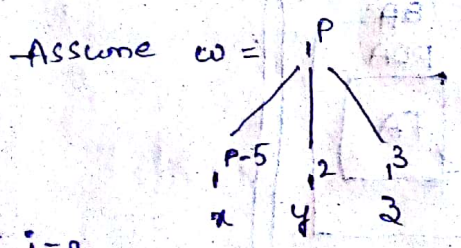 Assume ω = P
P-5 2 3
x y z
i=0